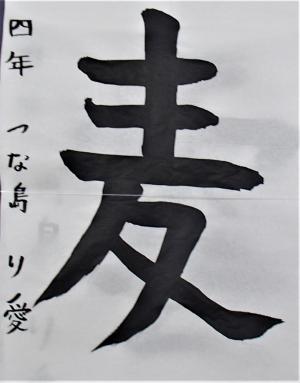 麦
四年 つな島 り愛